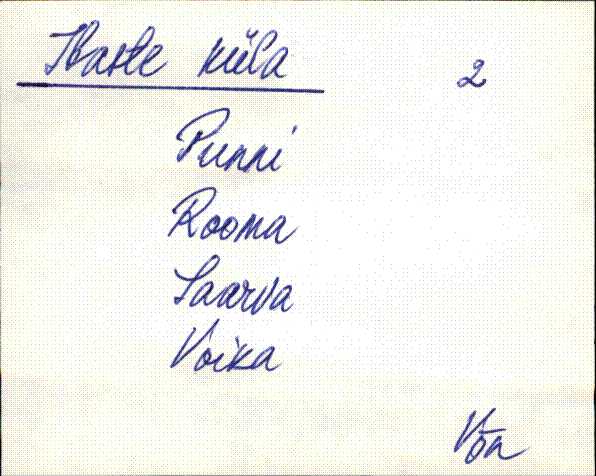 Ibaste küla 2
Punni
Rooma
Saarva
Voika
Võn